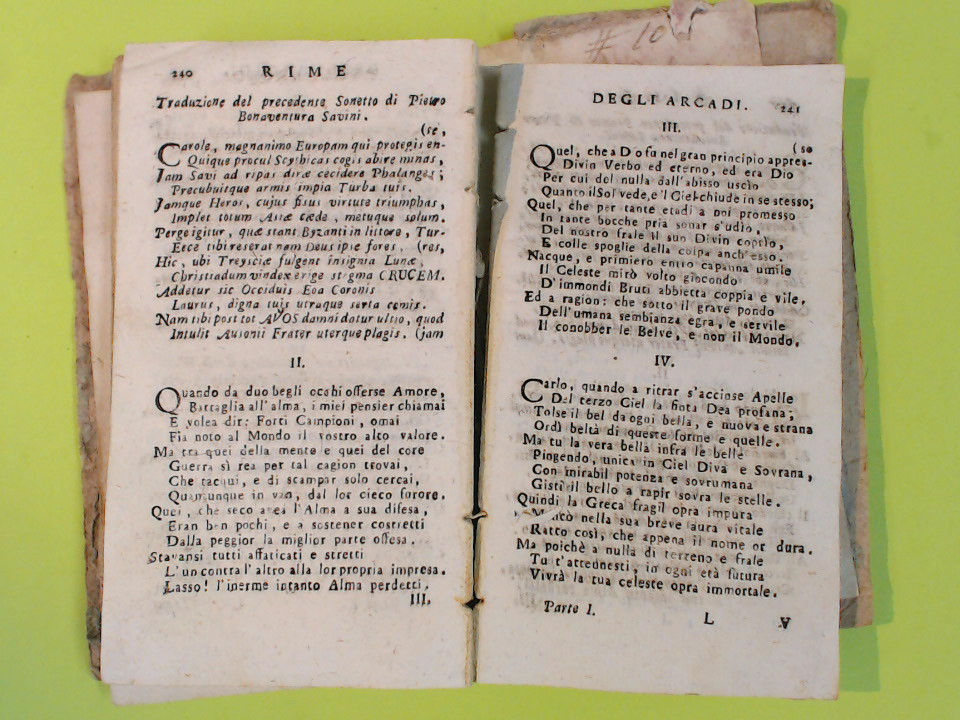 # 10
240 RIME
Traduzione del precedente Sonetto di Pietro
Bonaventura Savini.
(se,
Carole, magnanimo Europam qui protegis en-
Quique procul Scythicas cogis abire minas,
Jam Savi ad ripas diræ cecidere Phalanges;
Precubuitque armis impia Turba tuis.
Jamque Heros, cujus fisus virtute triumphas,
Implet totum Asiæ cæde, metuque solum.
Perge igitur, quæ stant Byzanti in littore, Tur-
Ecce tibi reserat nam Deus ipse fores. (res,
Hic, ubi Treyiciæ fulgent insignia Lunæ,
Christiadum vindex erige stigma CRUCEM.
Addetur sic Occiduis Eoa Coronis
Laurus, digna tuis utraque serta comis.
Nam tibi post tot AVOS damni datur ultio, quod
Intulit Ausonii Frater uterque plagis. (jam
II.
Quando da duo begli occhi offerse Amore,
Battaglia all'alma, i miei pensier chiamai
E volea dir: Forti Campioni, omai
Fia noto al Mondo il vostro alto valore.
Ma tra quei della mente e quei del core
Guerra sì rea per tal cagion trovai,
Che tacqui, e di scampar solo cercai,
Quantunque in van, dal lor cieco furore.
Quei, che seco avea l'Alma a sua difesa,
Eran ben pochi, e a sostener costretti
Dalla peggior la miglior parte offesa.
Stavansi tutti affaticati e stretti
L'un contra l'altro alla lor propria impresa.
Lasso! l'inerme intanto Alma perdetti.
III.
DEGLI ARCADI. 241
III.
(so
Quel, che a Dio fu nel gran principio appres-
Divin Verbo ed eterno, ed era Dio
Per cui del nulla dall'abisso uscìo
Quanto il Sol vede, e 'l Ciel chiude in se stesso;
Quel, che per tante etadi a noi promesso
In tante bocche pria sonar s'udìo,
Del nostro frale il suo Divin coprìo,
E colle spoglie della colpa anch'esso.
Nacque, e primiero entro capanna umile
Il Celeste mirò volto giocondo
D'immondi Bruti abbietta coppia e vile.
Ed a ragion: che sotto il grave pondo
Dell'umana sembianza egra, e servile
Il conobber le Belve, e non il Mondo.
IV.
Carlo, quando a ritrar s'accinse Apelle
Del terzo Ciel la finta Dea profana;
Tolse il bel da ogni bella, e nuova e strana
Ordì beltà di queste forme e quelle.
Ma tu la vera bella infra le belle
Pingendo, unica in Ciel Diva e Sovrana,
Con mirabil potenza e sovrumana
Gisti il bello a rapir sovra le stelle.
Quindi la Greca fragil opra impura
Mancò nella sua breve aura vitale
Ratto così, che appena il nome or dura.
Ma poichè a nulla di terreno e frale
Tu t'attenesti, in ogni età futura
Vivrà la tua celeste opra immortale.
Parte I. L V